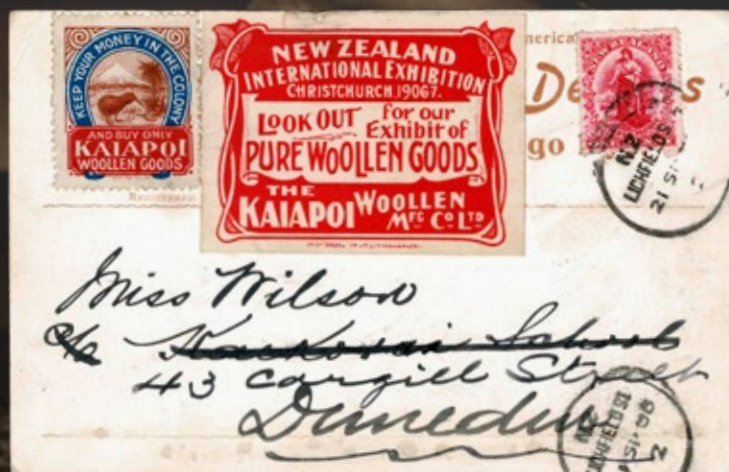 KEEP YOUR MONEY IN THE COLONY
AND BUY ONLY
KAIAPOI
WOOLLEN GOODS
NEW ZEALAND
INTERNATIONAL EXHIBITION
CHRISTCHURCH 19067.
LOOK OUT for our
Exhibit of
PURE WOOLLEN GOODS
THE
KAIAPOI WOOLLEN
MFG CO LTD
NEW ZEALAND
go
NZ
21
Miss Wilson
c/o School
43 Cargill Street
Dunedin
NZ
2